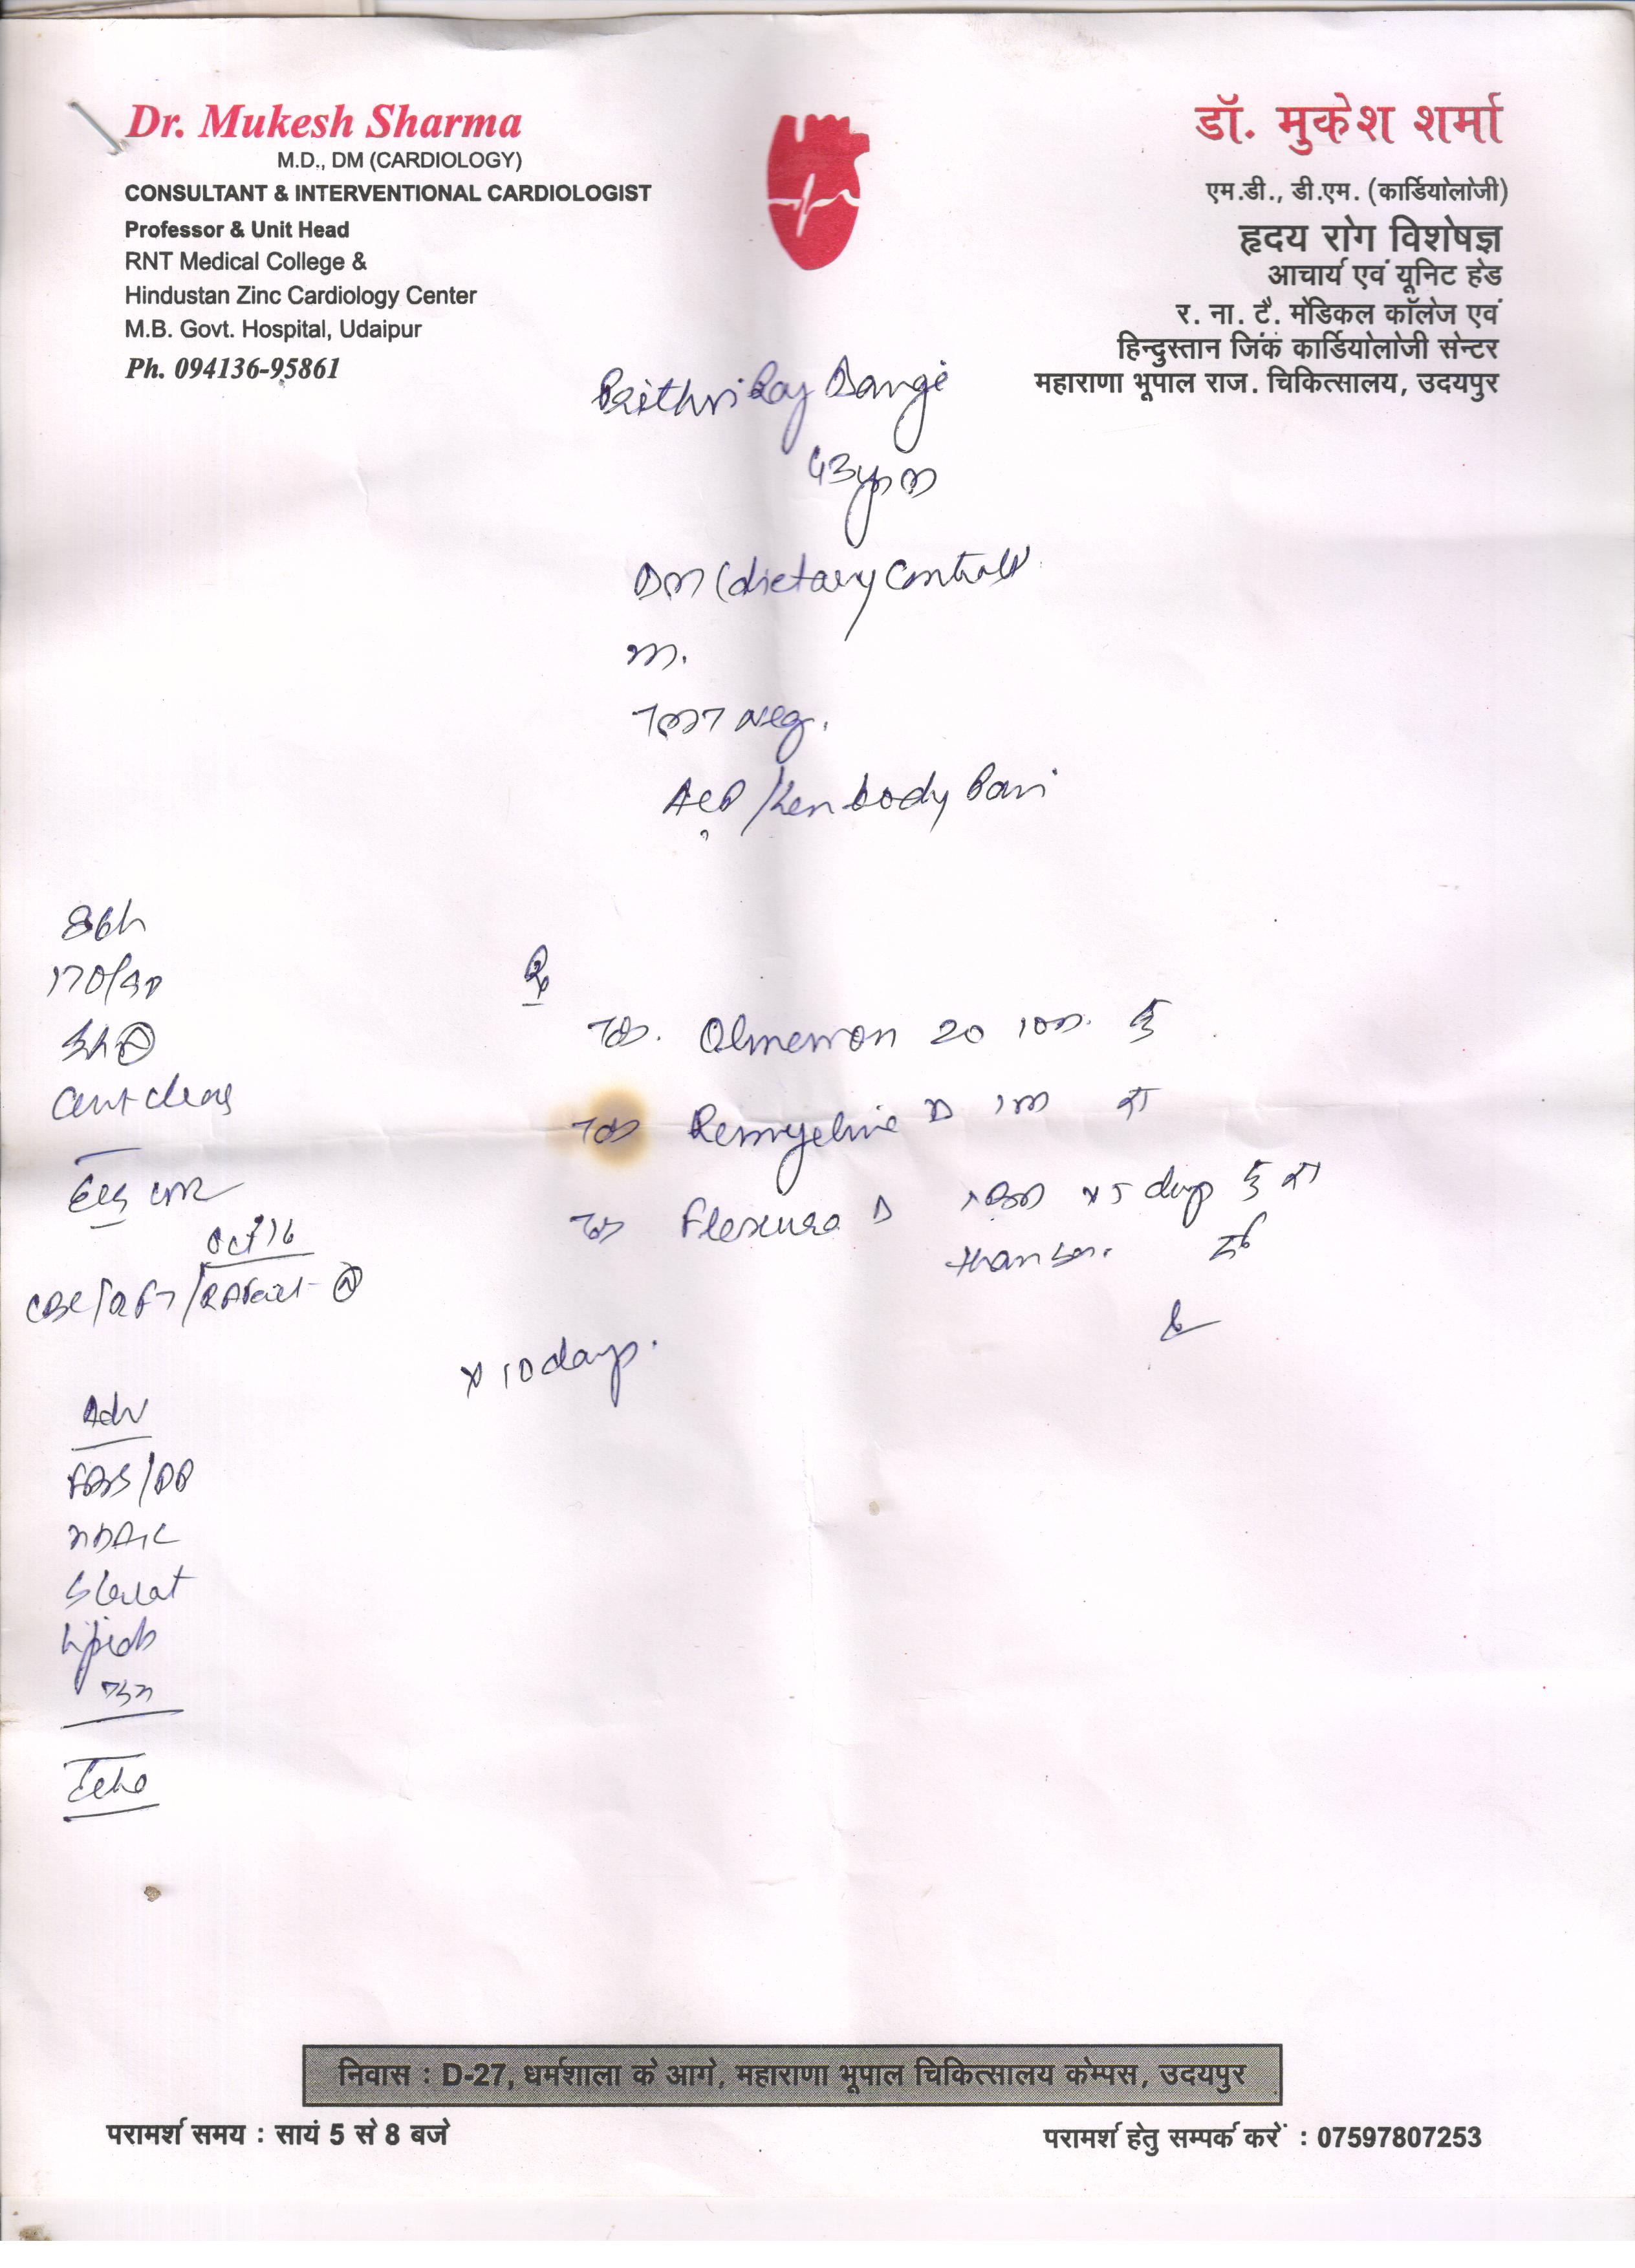 Dr. Mukesh Sharma
M.D., DM (CARDIOLOGY)
CONSULTANT & INTERVENTIONAL CARDIOLOGIST
Professor & Unit Head
RNT Medical College &
Hindustan Zinc Cardiology Center
M.B. Govt. Hospital, Udaipur
Ph. 094136-95861
डॉ. मुकेश शर्मा
एम.डी., डी.एम. (कार्डियोलोजी)
हृदय रोग विशेषज्ञ
आचार्य एवं यूनिट हेड
र. ना. टै. मेडिकल कॉलेज एवं
हिन्दुस्तान जिंक कार्डियोलोजी सेन्टर
महाराणा भूपाल राज. चिकित्सालय, उदयपुर
Prithvi Raj Dangi
43y m
DM (dietary control)
TMT Neg.
body Pain
170/90
Chest clear
ECG
Oct 16
Rx
Tab. 20
Tab D
Tab Flexura D x 5 days
than sos.
x 10 days.
Adv
FBS/PP
HbA1C
S Creat
Lipids
TSH
Echo
निवास : D-27, धर्मशाला के आगे, महाराणा भूपाल चिकित्सालय केम्पस, उदयपुर
परामर्श समय : सायं 5 से 8 बजे
परामर्श हेतु सम्पर्क करें : 07597807253